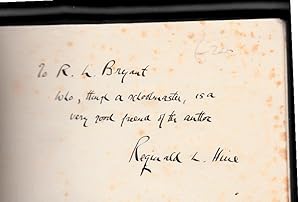 To R. L. Bryant
who, though a schoolmaster, is a
very good friend of the author
Reginald L. Hine